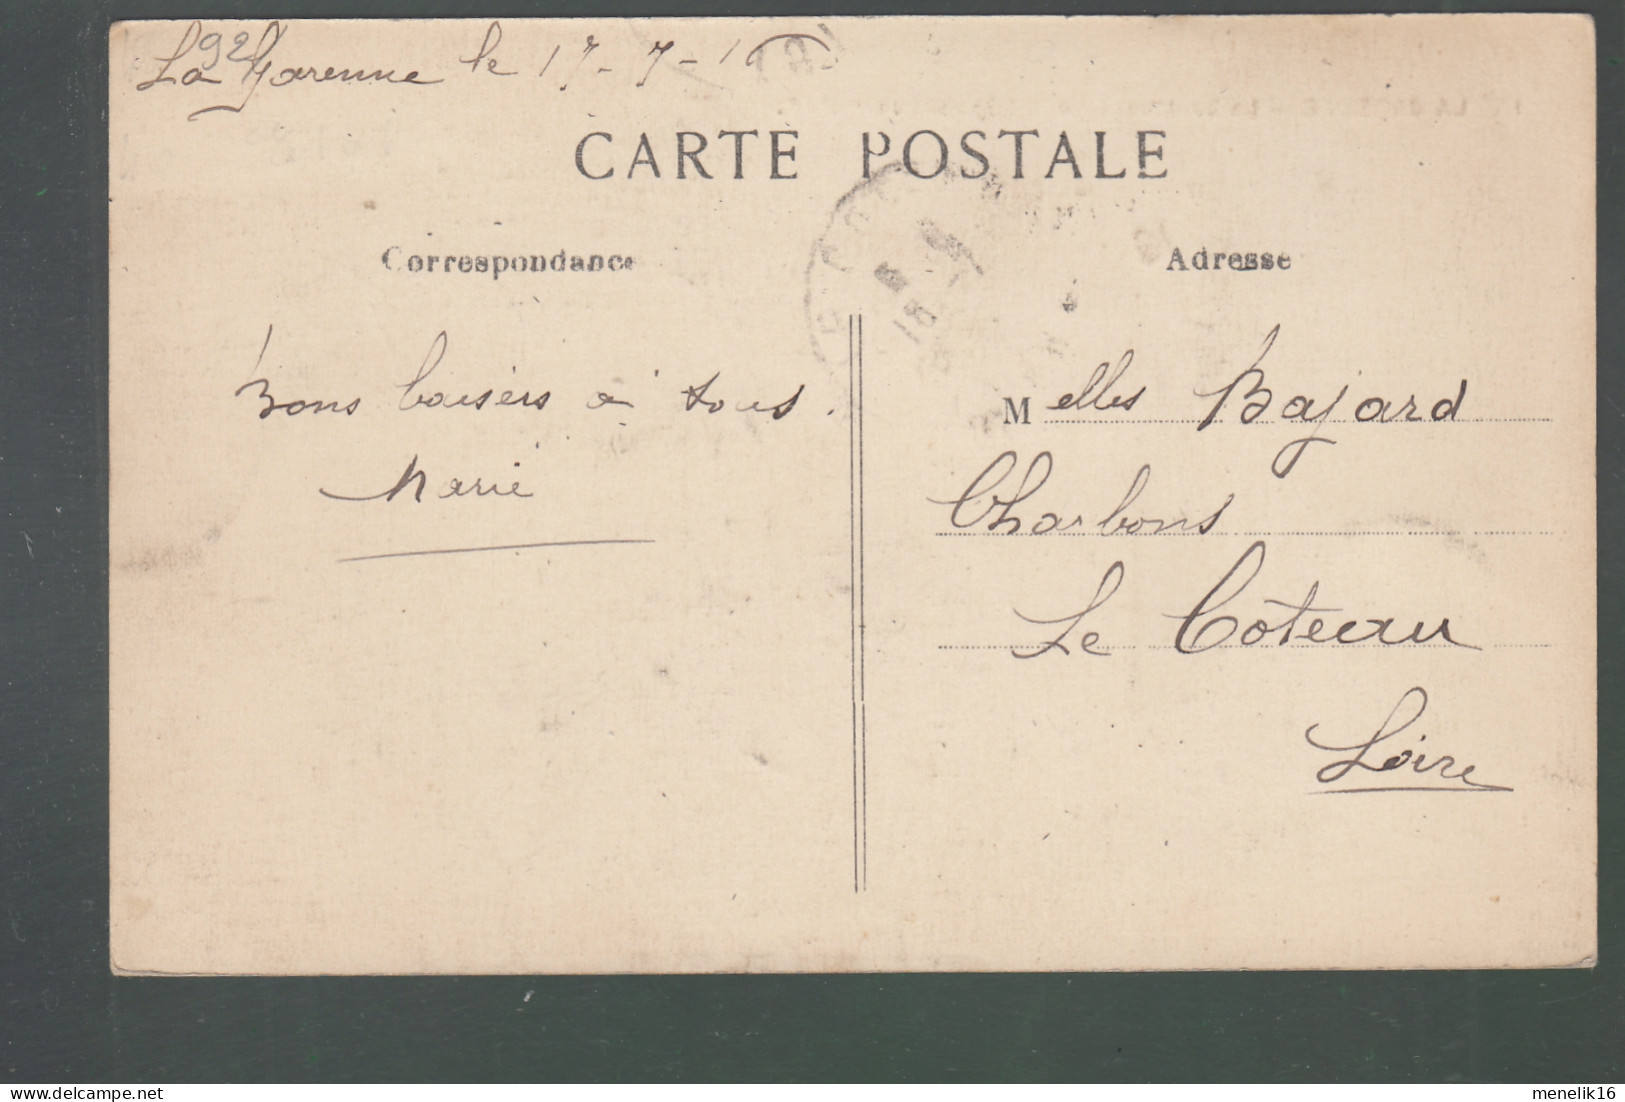 La Garenne le 17-7-
92
CARTE POSTALE
Correspondance
Adresse
Bons baisers à tous.
Marie
Melles Bajard
Charbons
Le Coteau
Loire
menelik16